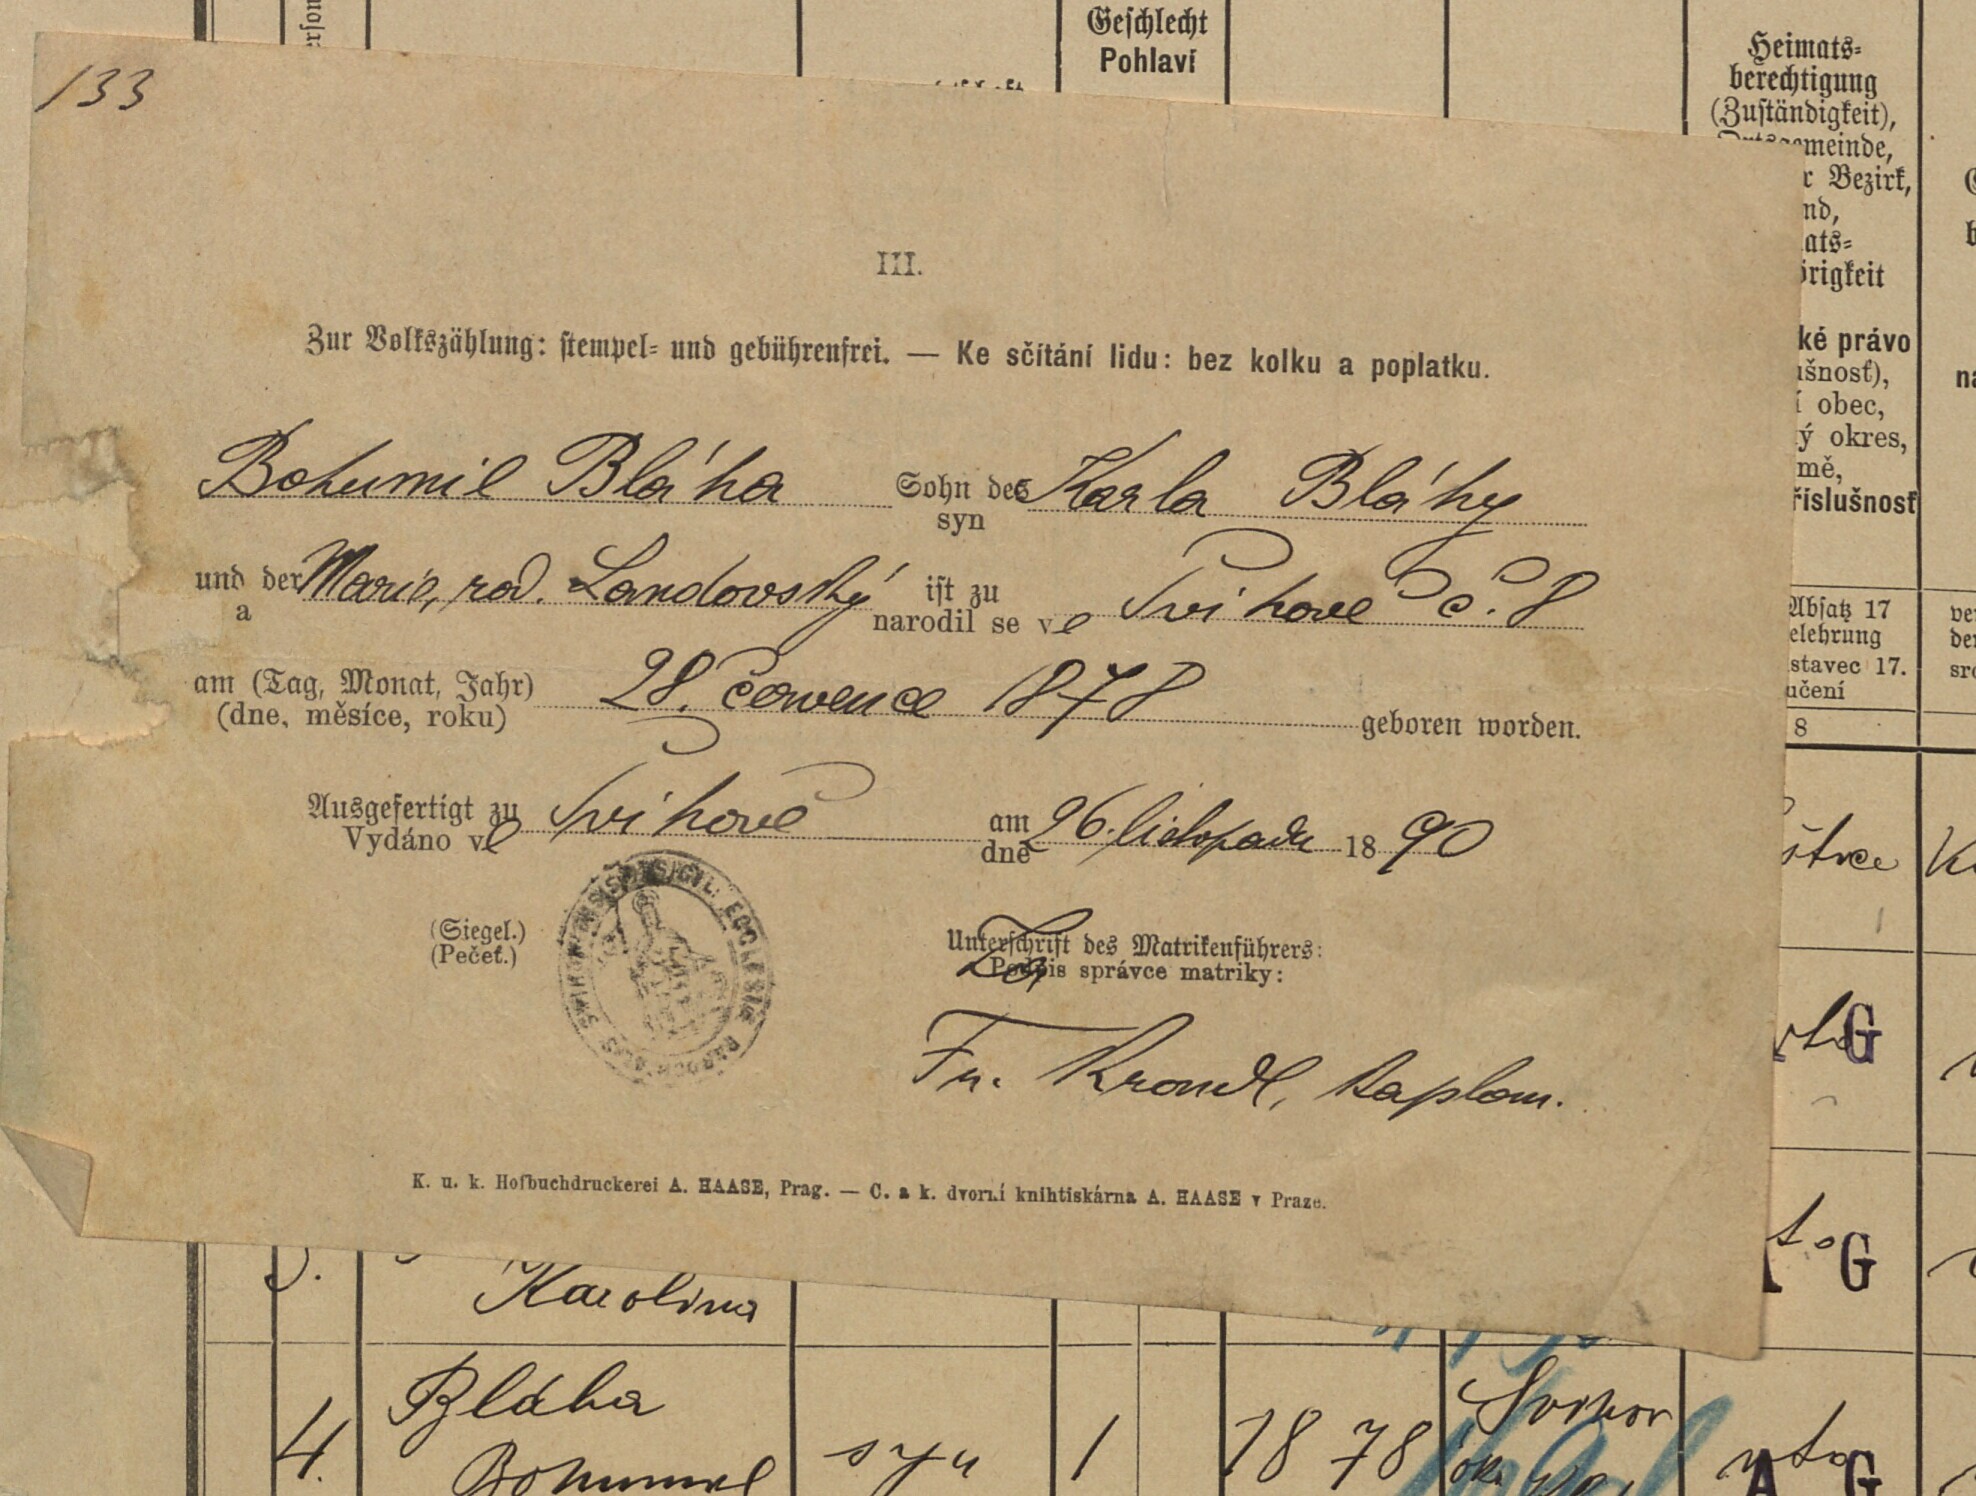 Geschlecht
Pohlaví
Heimats-
berechtigung
(Zuständigkeit),
meinde,
r Bezirk,
nd,
ats-
örigkeit
ké právo
ušnosť),
í obec,
ý okres,
mě,
říslušnosť
Absatz 17
elehrung
stavec 17.
učení
8
133
III.
Zur Volkszählung: stempel- und gebührenfrei. — Ke sčítání lidu: bez kolku a poplatku.
Bohumil Bláha Sohn des Karla Bláhy
syn
und der Marie, rod. Landovský ist zu
a narodil se ve Švihově č. 8
am (Tag, Monat, Jahr) 28. července 1878
(dne, měsíce, roku) geboren worden.
Ausgefertigt zu Švihově am 26. listopadu 1890
Vydáno ve dne
(Siegel.) Unterschrift des Matrikenführers:
(Pečeť.) Za Podpis správce matriky:
SIGIL. ECCLESIAE PAROCHIALIS
Fr. Krondl, kaplan.
K. u. k. Hofbuchdruckerei A. HAASE, Prag. — C. a k. dvorní knihtiskárna A. HAASE v Praze.
G
G
Karolina
4. Bláha
Bohumil syn 1 1878 Švihov
A G